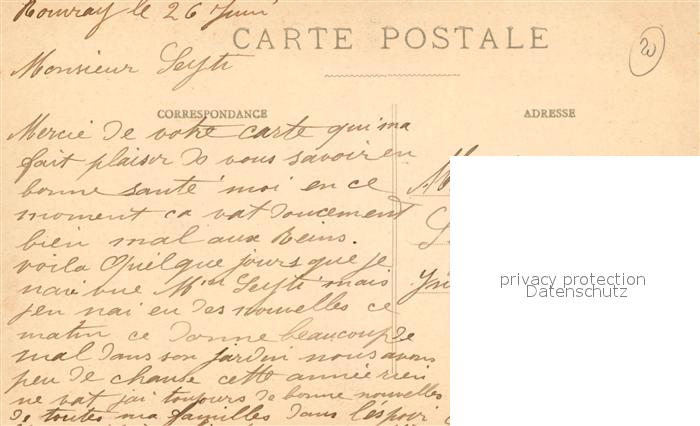 Rouvray le 26 Juin
CARTE POSTALE
20
Monsieur Seyti
CORRESPONDANCE
ADRESSE
Mercie de votre carte qui ma
fait plaisir de vous savoir en
bonne santé moi en ce
moment ca vat doucement
bien mal aux Reins.
voila quelque jours que je
nai vue Mme Seyti mais
jen nai eu des nouvelles ce
matin ce donne beaucoup de
mal dans son jardin nous avons
peu de chanse cette année rien
ne vat jai toujours de bonne nouvelles
de toutes ma familles dans l'éspoir
privacy protection
Datenschutz